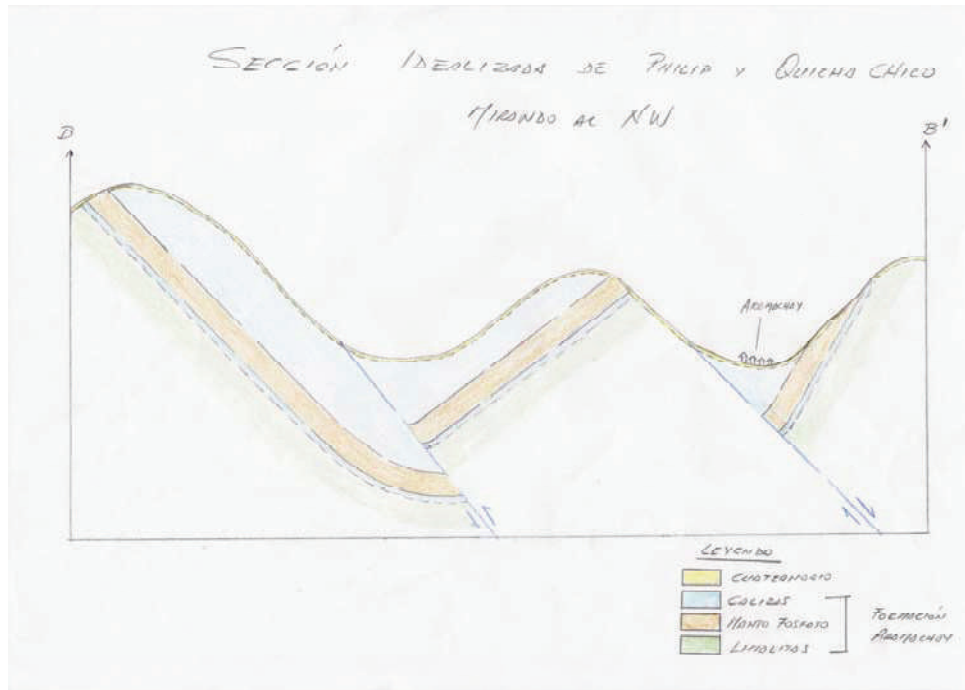 SECCIÓN IDEALIZADA DE PHILIP Y QUICHA CHICO
MIRANDO AL NW
B
B'
ARAMACHAY
LEYENDA
CUATERNARIO
CALIZAS
MANTO FOSFATO
LIMOLITAS
FORMACIÓN
ARAMACHAY